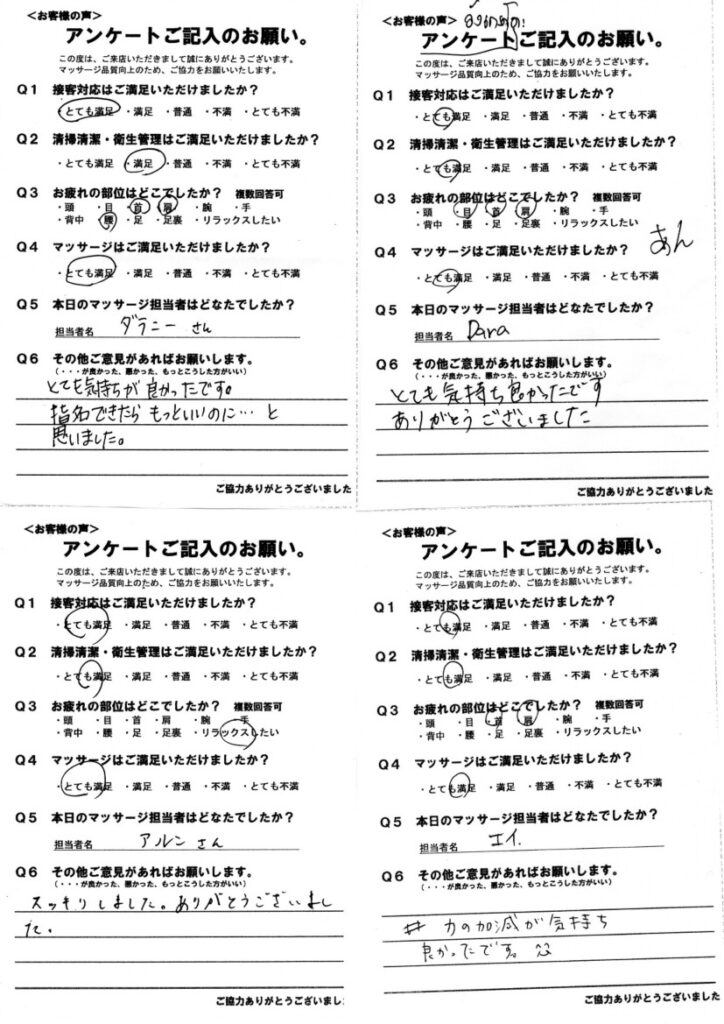 <お客様の声>
アンケートご記入のお願い。
この度は、ご来店いただきまして誠にありがとうございます。
マッサージ品質向上のため、ご協力をお願いいたします。
Q1 接客対応はご満足いただけましたか？
・とても満足 ・満足 ・普通 ・不満 ・とても不満
Q2 清掃清潔・衛生管理はご満足いただけましたか？
・とても満足 ・満足 ・普通 ・不満 ・とても不満
Q3 お疲れの部位はどこでしたか？ 複数回答可
・頭 ・目 ・首 ・肩 ・腕 ・手
・背中 ・腰 ・足 ・足裏 ・リラックスしたい
Q4 マッサージはご満足いただけましたか？
・とても満足 ・満足 ・普通 ・不満 ・とても不満
Q5 本日のマッサージ担当者はどなたでしたか？
担当者名 ダラニー さん
Q6 その他ご意見があればお願いします。
（・・・が良かった、悪かった、もっとこうした方がいい）
とても気持ちが良かったです。
指名できたら もっといいのに… と
思いました。
ご協力ありがとうございました
<お客様の声>
アンケートご記入のお願い。
この度は、ご来店いただきまして誠にありがとうございます。
マッサージ品質向上のため、ご協力をお願いいたします。
Q1 接客対応はご満足いただけましたか？
・とても満足 ・満足 ・普通 ・不満 ・とても不満
Q2 清掃清潔・衛生管理はご満足いただけましたか？
・とても満足 ・満足 ・普通 ・不満 ・とても不満
Q3 お疲れの部位はどこでしたか？ 複数回答可
・頭 ・目 ・首 ・肩 ・腕 ・手
・背中 ・腰 ・足 ・足裏 ・リラックスしたい
Q4 マッサージはご満足いただけましたか？
あん
・とても満足 ・満足 ・普通 ・不満 ・とても不満
Q5 本日のマッサージ担当者はどなたでしたか？
担当者名 Dara
Q6 その他ご意見があればお願いします。
（・・・が良かった、悪かった、もっとこうした方がいい）
とても気持ち良かったです
ありがとうございました
ご協力ありがとうございました
<お客様の声>
アンケートご記入のお願い。
この度は、ご来店いただきまして誠にありがとうございます。
マッサージ品質向上のため、ご協力をお願いいたします。
Q1 接客対応はご満足いただけましたか？
・とても満足 ・満足 ・普通 ・不満 ・とても不満
Q2 清掃清潔・衛生管理はご満足いただけましたか？
・とても満足 ・満足 ・普通 ・不満 ・とても不満
Q3 お疲れの部位はどこでしたか？ 複数回答可
・頭 ・目 ・首 ・肩 ・腕 ・手
・背中 ・腰 ・足 ・足裏 ・リラックスしたい
Q4 マッサージはご満足いただけましたか？
・とても満足 ・満足 ・普通 ・不満 ・とても不満
Q5 本日のマッサージ担当者はどなたでしたか？
担当者名 アルン さん
Q6 その他ご意見があればお願いします。
（・・・が良かった、悪かった、もっとこうした方がいい）
スッキリしました。ありがとうございまし
た。
ご協力ありがとうございまし
<お客様の声>
アンケートご記入のお願い。
この度は、ご来店いただきまして誠にありがとうございます。
マッサージ品質向上のため、ご協力をお願いいたします。
Q1 接客対応はご満足いただけましたか？
・とても満足 ・満足 ・普通 ・不満 ・とても不満
Q2 清掃清潔・衛生管理はご満足いただけましたか？
・とても満足 ・満足 ・普通 ・不満 ・とても不満
Q3 お疲れの部位はどこでしたか？ 複数回答可
・頭 ・目 ・首 ・肩 ・腕 ・手
・背中 ・腰 ・足 ・足裏 ・リラックスしたい
Q4 マッサージはご満足いただけましたか？
・とても満足 ・満足 ・普通 ・不満 ・とても不満
Q5 本日のマッサージ担当者はどなたでしたか？
担当者名 エイ.
Q6 その他ご意見があればお願いします。
（・・・が良かった、悪かった、もっとこうした方がいい）
力の加減が気持ち
良かったです。
ご協力ありがとうございました